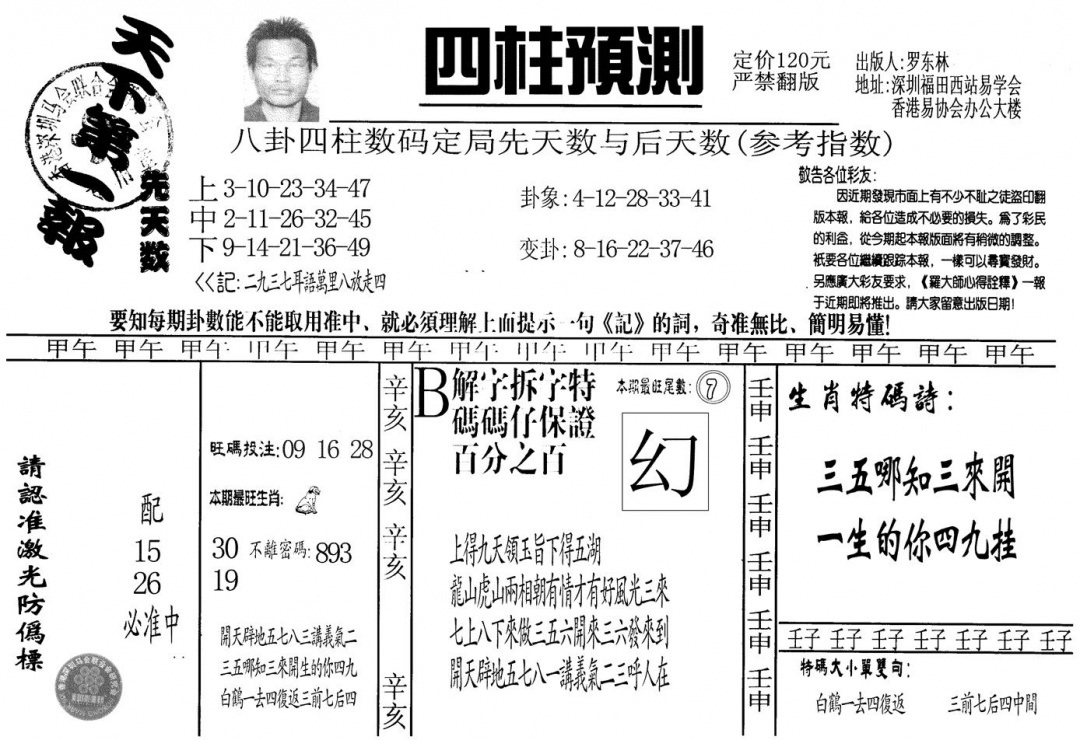 天下第一報
四柱預測
定价120元
严禁翻版
出版人:罗东林
地址:深圳福田西站易学会
香港易协会办公大楼
八卦四柱数码定局先天数与后天数(参考指数)
先天数
上 3-10-23-34-47
中 2-11-26-32-45
下 9-14-21-36-49
卦象:4-12-28-33-41
变卦:8-16-22-37-46
<<記:二九三七耳語萬里八放走四
敬告各位彩友:
因近期發現市面上有不少不恥之徒盜印翻
版本報,給各位造成不必要的損失。爲了彩民
的利益,從今期起本報版面將有稍微的調整。
衹要各位繼續跟踪本報,一樣可以尋寶發財。
另應廣大彩友要求,《羅大師心得詮釋》一報
于近期即將推出。請大家留意出版日期!
要知每期卦數能不能取用准中、就必須理解上面提示一句《記》的詞,奇准無比、簡明易懂!
甲午 甲午 甲午 甲午 甲午 甲午 甲午 甲午 甲午 甲午 甲午 甲午 甲午 甲午 甲午
請認准激光防僞標
配
15
26
必准中
旺碼投注:09 16 28
本期最旺生肖:
30 不離密碼:893
19
開天辟地五七八三講義氣二
三五哪知三來開生的你四九
白鶴一去四復返三前七后四
辛亥
辛亥
辛亥
辛亥
B
解字拆字特
碼碼仔保證
百分之百
本期最旺尾數:7
幻
上得九天領玉旨下得五湖
龍山虎山兩相朝有情才有好風光三來
七上八下來做三五六開來三六發來到
開天辟地五七八一講義氣二三呼人在
壬申
壬申
壬申
壬申
壬申
壬申
生肖特碼詩:
三五哪知三來開
一生的你四九挂
壬子 壬子 壬子 壬子 壬子 壬子 壬子
特碼大小單雙句:
白鶴一去四復返 三前七后四中間